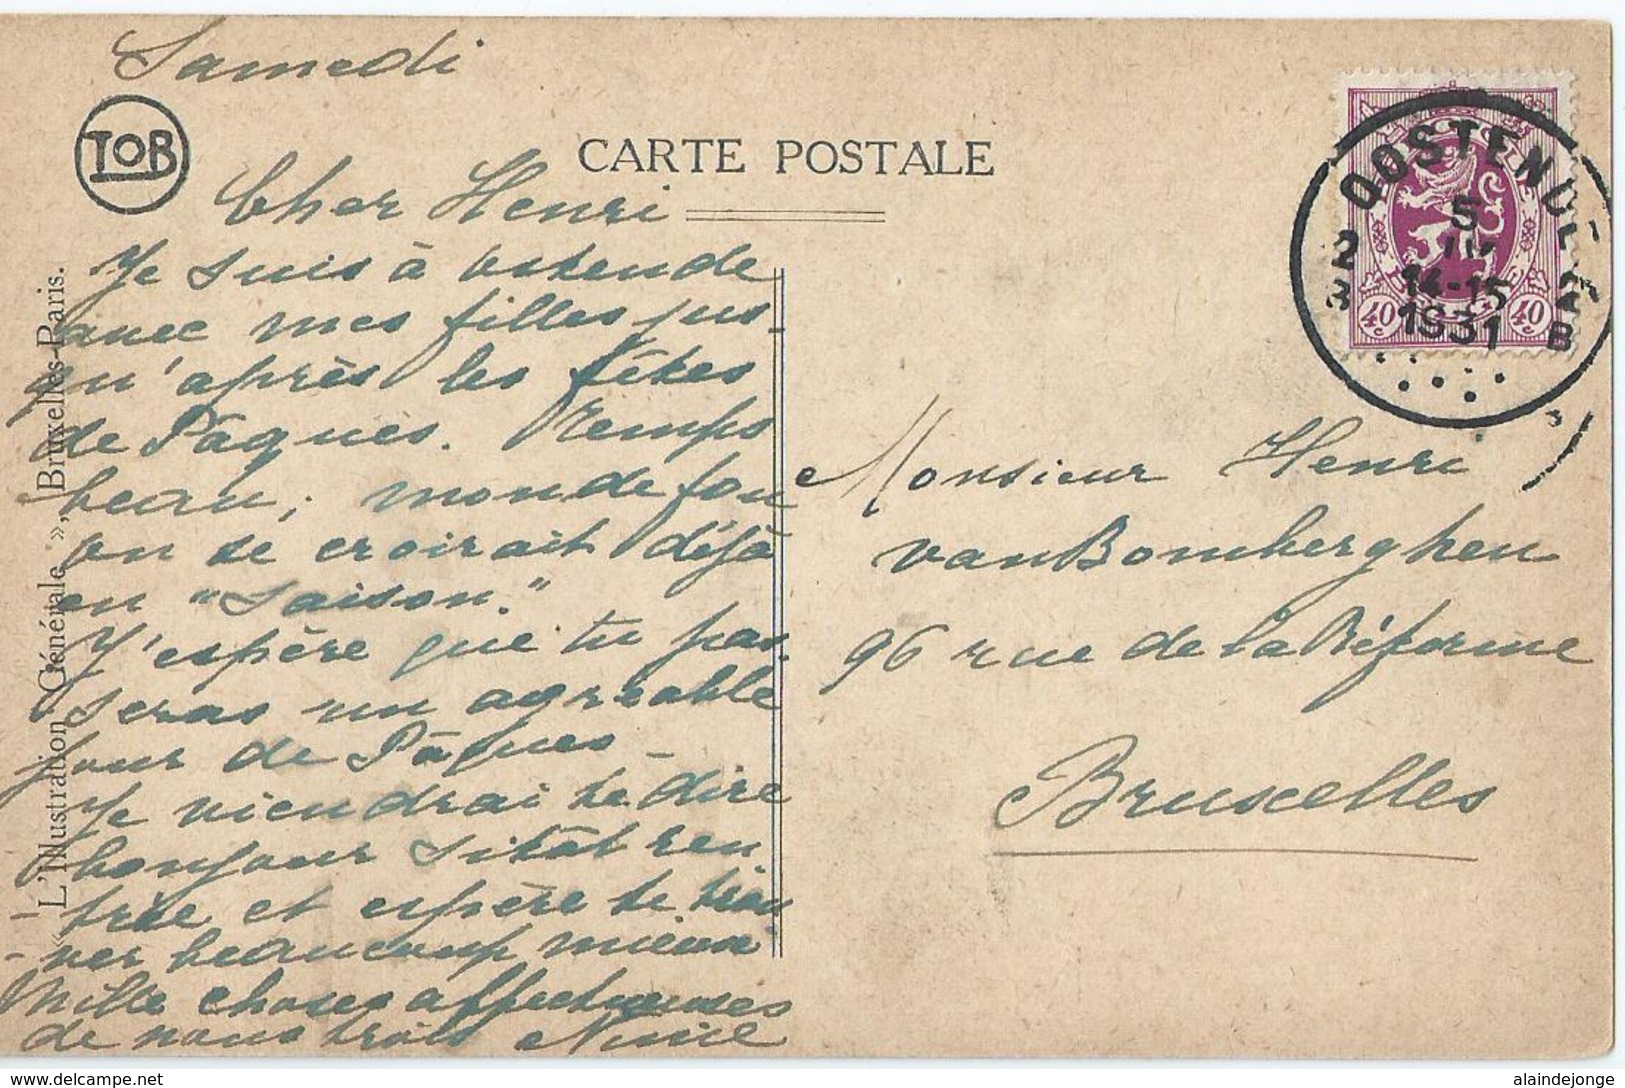 Samedi
TOB
CARTE POSTALE
Cher Henri
Je suis à Ostende
avec mes filles jus-
qu'après les fêtes
de Pâques. Temps
beau; monde fou
on se croirait déjà
en "saison."
J'espère que tu pas-
seras un agréable
jour de Pâques -
Je viendrai te dire
bonjour sitôt ren-
- trée et espère te trou
- ver beaucoup mieux
Mille choses affectueuses
de nous trois
« L'Illustration Générale », Bruxelles-Paris.
OOSTENDE
2 2
5
IV
14-15
1931
B
40c 40c
Monsieur Henri
van Bomberghen
96 rue de la Réforme
Bruxelles
www.delcampe.net
alaindejonge